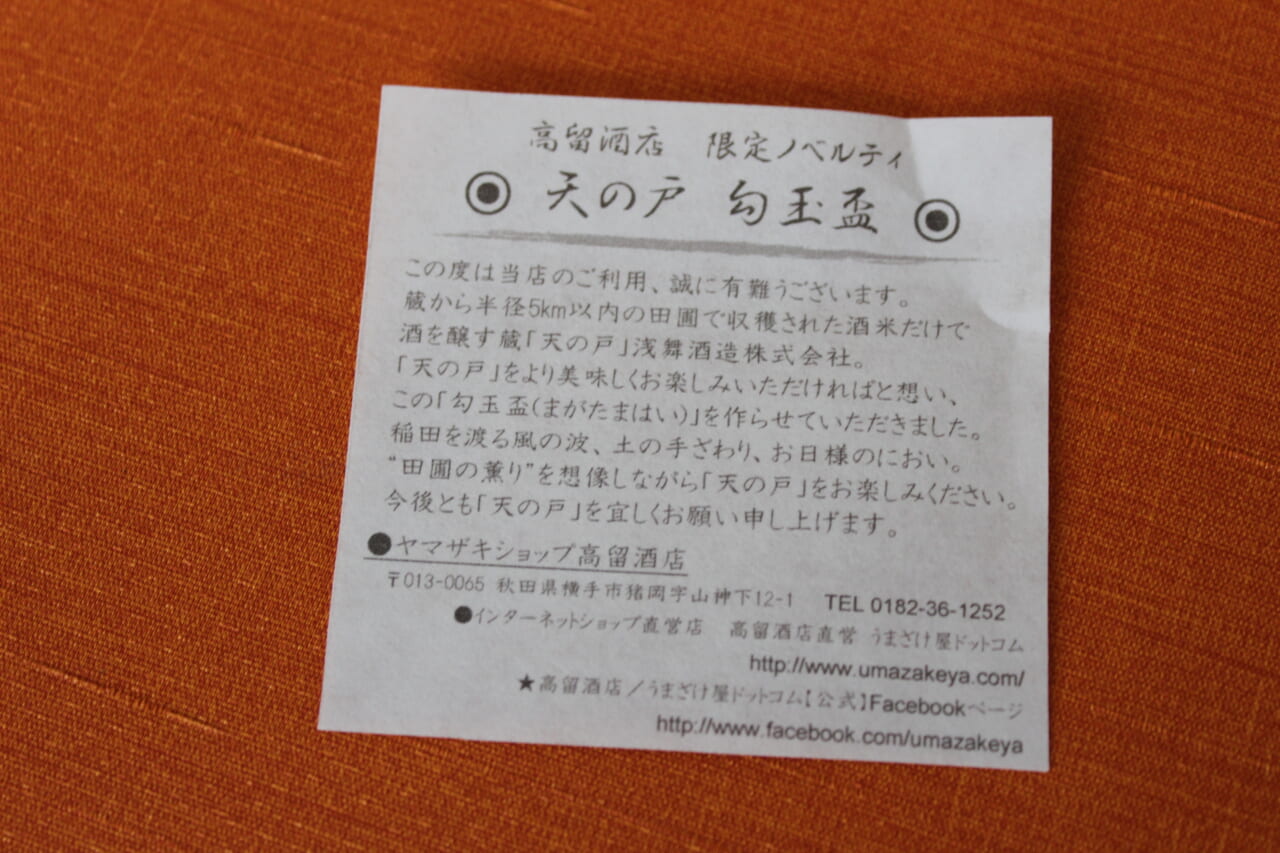 高留酒店　限定ノベルティ
天の戸　勾玉盃
この度は当店のご利用、誠に有難うございます。
蔵から半径5km以内の田圃で収穫された酒米だけで
酒を醸す蔵「天の戸」浅舞酒造株式会社。
「天の戸」をより美味しくお楽しみいただければと想い、
この「勾玉盃(まがたまはい)」を作らせていただきました。
稲田を渡る風の波、土の手ざわり、お日様のにおい。
“田圃の薫り”を想像しながら「天の戸」をお楽しみください。
今後とも「天の戸」を宜しくお願い申し上げます。
●ヤマザキショップ高留酒店
〒013-0065 秋田県横手市猪岡字山神下12-1　TEL 0182-36-1252
●インターネットショップ直営店　高留酒店直営 うまざけ屋ドットコム
http://www.umazakeya.com/
★高留酒店／うまざけ屋ドットコム【公式】Facebookページ
http://www.facebook.com/umazakeya